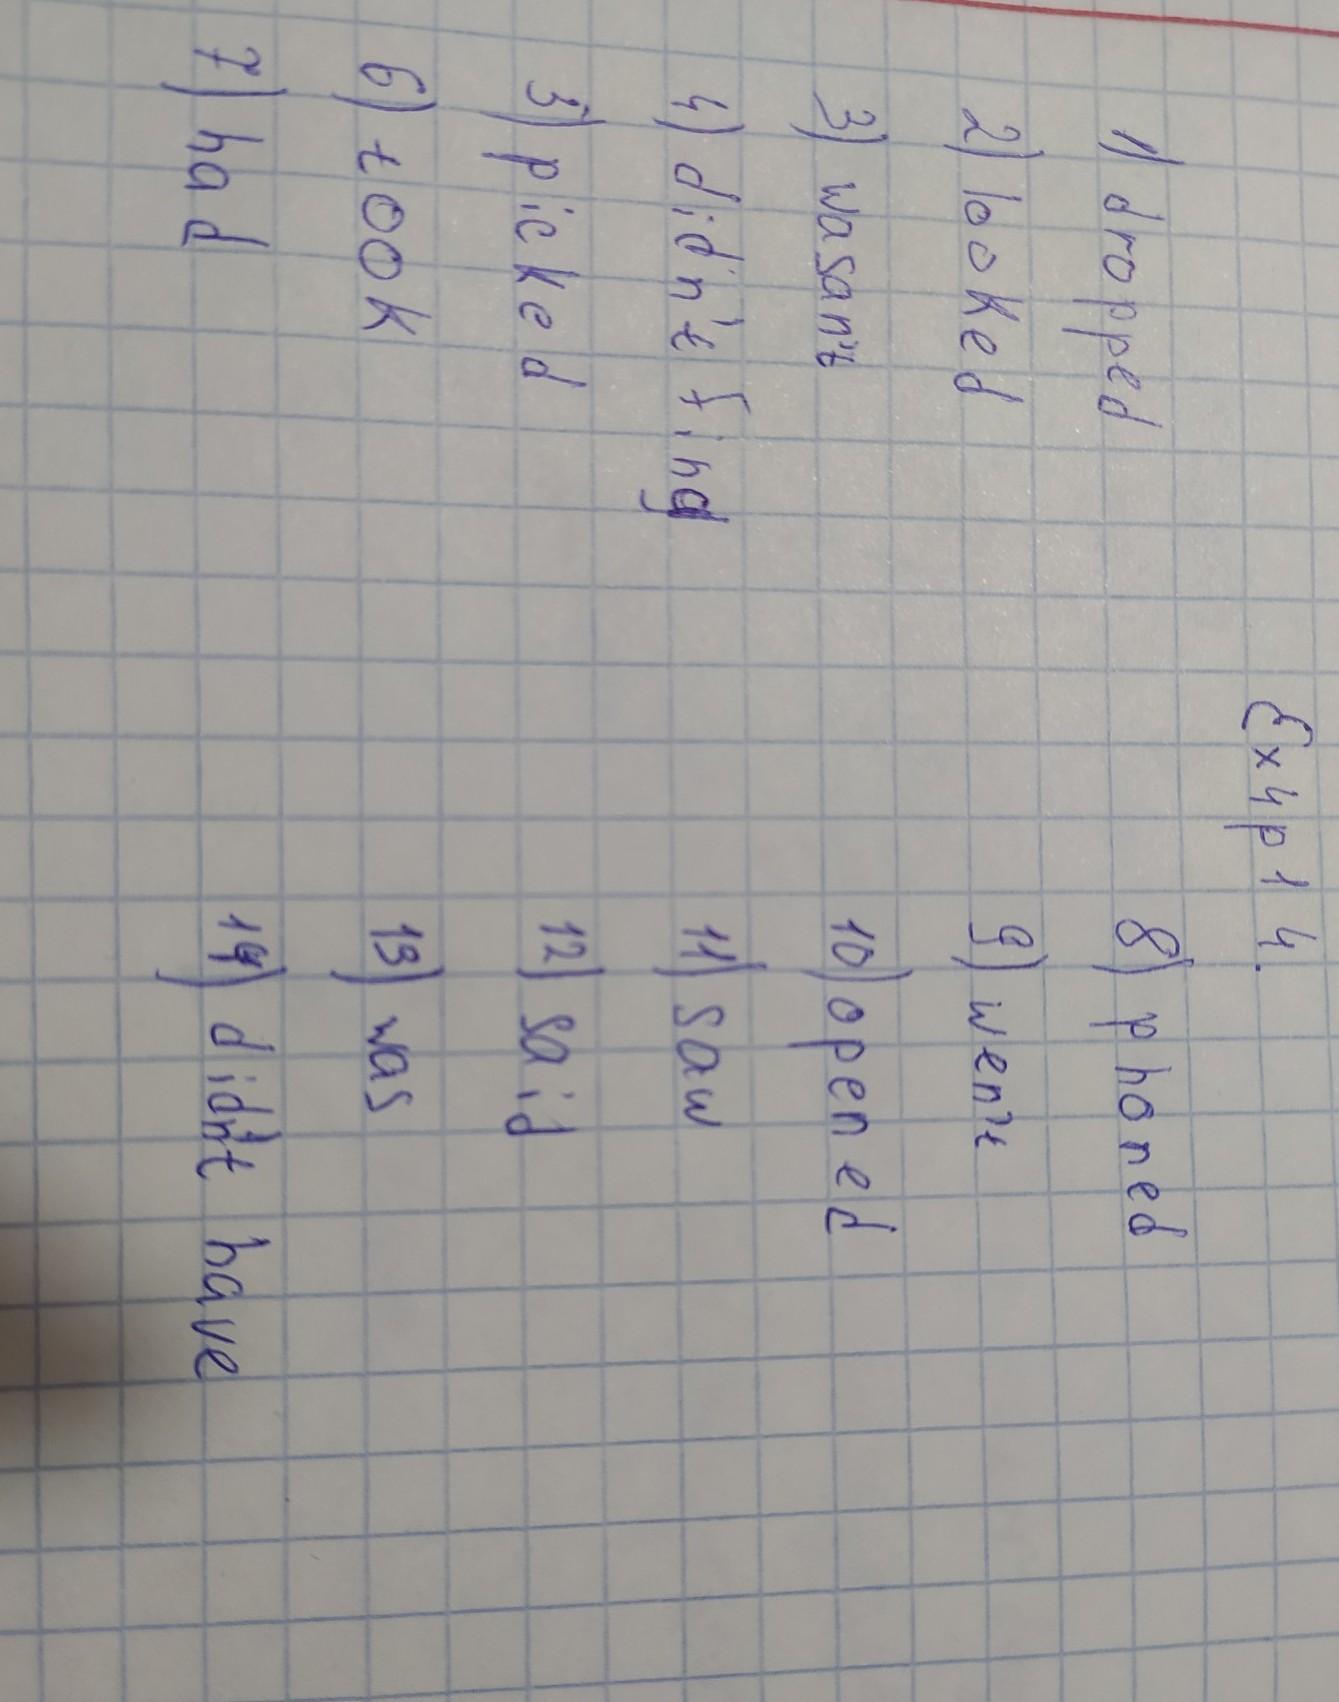 Ex 4 p 14.
1) dropped
2) looked
3) wasan't
4) didn't find
3) picked
6) took
7) had
8) phoned
9) wen't
10) opened
11) saw
12) said
13) was
14) didn't have